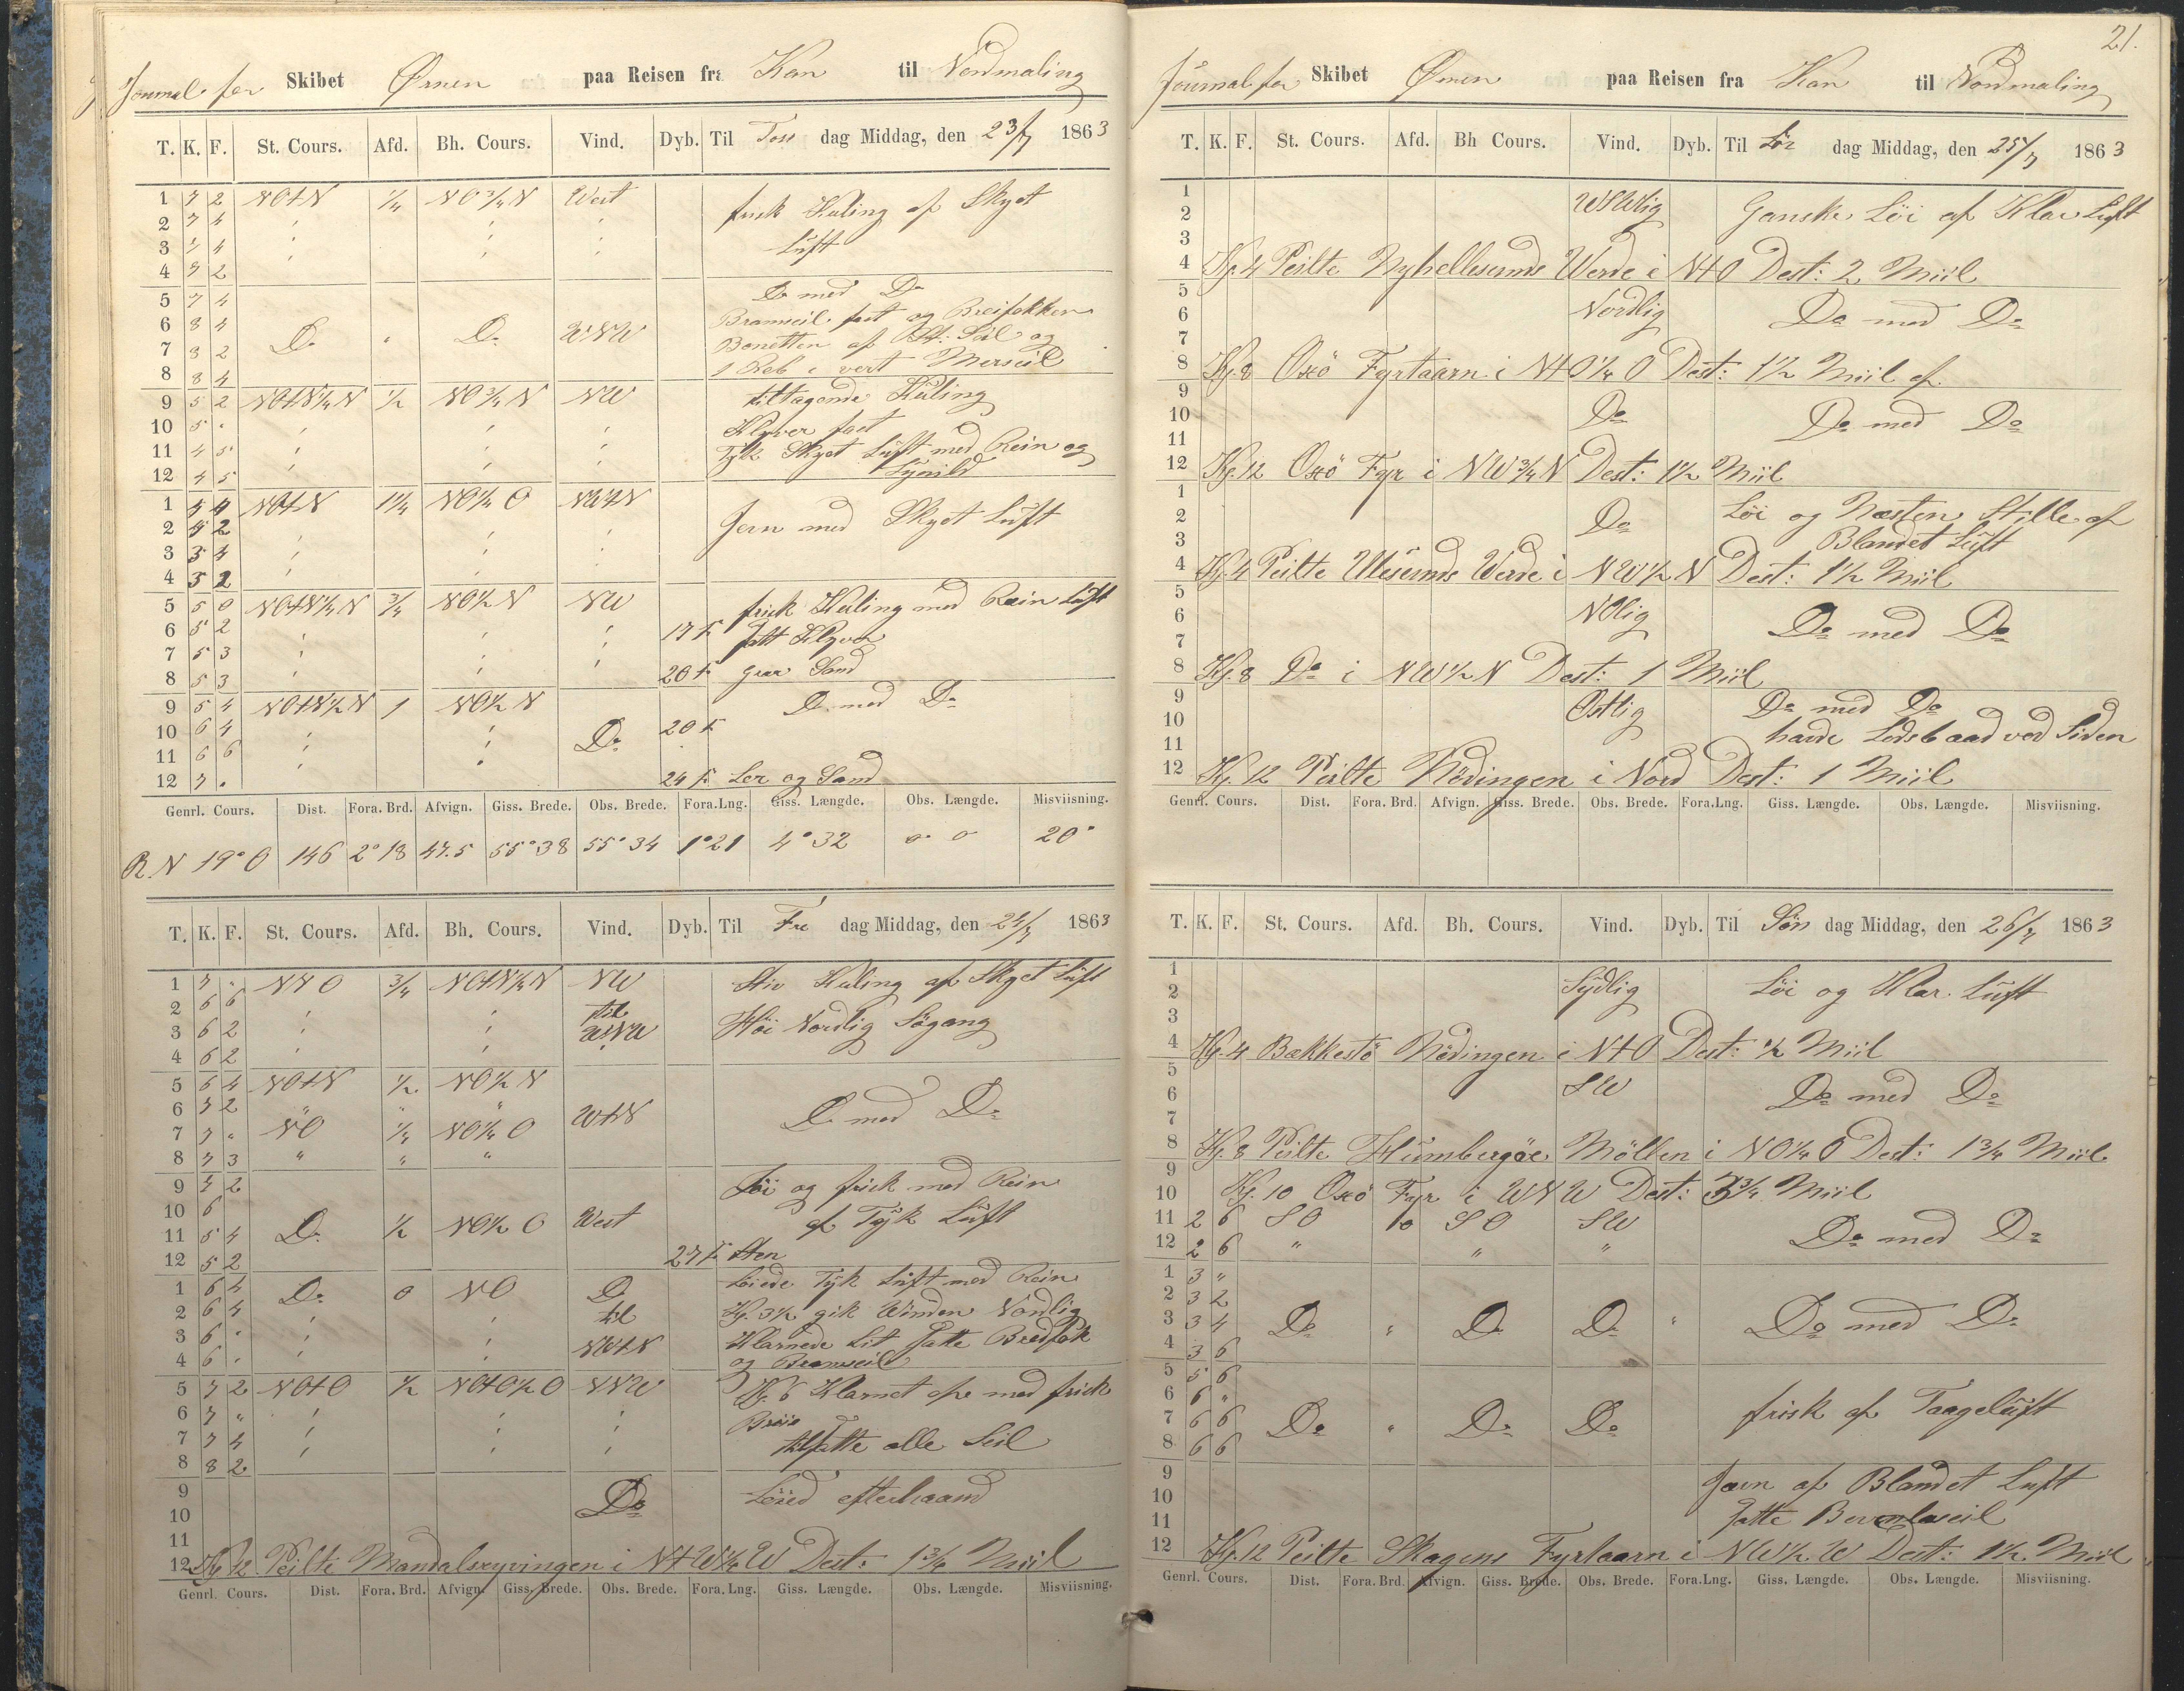 Journal for Skibet Ørnen paa Reisen fra Kan til Nordmaling
T. K. F. St. Cours. Afd. Bh. Cours. Vind. Dyb. Til Tors dag Middag, den 23/7 1863
1 7 2 NOtN 1/4 NO 3/4 N West frisk Kuling af Skyet
2 7 4 Luft
3 7 4
4 7 2
5 7 4 Do med Do
6 8 4 Do " Do WNW Bramseil fast og Breifokken
7 8 2 Bonetten af St: Seil og
8 8 4 1 Reb i vert Merseil
9 5 2 NOtN 1/4 N 1/2 NO 3/4 N NW tiltagende Kuling
10 5 " Klyver fast
11 4 5 Tyk Skyet Luft med Rein og
12 4 5 Lynild
1 4 4 NOtN 1 1/4 NO 1/4 O NWtN Jevn med Skyet Luft
2 4 2
3 3 4
4 3 2
5 5 0 NOtN 1/4 N 3/4 NO 1/2 N NW frisk Kuling med Rein Luft
6 5 2 17 F. Satt Klyver
7 5 3
8 5 3 20 F. graa Sand
9 5 4 NOtN 1/2 N 1 NO 1/2 N Do med Do
10 6 4 Do 20 F.
11 6 6
12 7 " 24 F. Ler og Sand
Genrl. Cours. Dist. Fora. Brd. Afvign. Giss. Brede. Obs. Brede. Fora.Lng. Giss. Længde. Obs. Længde. Misviisning.
R. N 19° O 146 2°18 47.5 55°38 55°34 1°21 4°32 o o 20°
T. K. F. St. Cours. Afd. Bh. Cours. Vind. Dyb. Til Fre dag Middag, den 24/7 1863
1 7 " NNO 3/4 NOtN 1/4 N NW Stiv Kuling af Skyet Luft
2 6 6 til
3 6 2 WNW Høi Nordlig Søgang
4 6 2
5 6 4 NOtN 1/2 NO 1/2 N
6 7 2 " " " WtN Do med Do
7 7 " NO 1/4 NO 1/4 O
8 7 3 " " "
9 7 2 Løi og frisk med Rein
10 6 West af Tyk Luft
11 5 4 Do 1/2 NO 1/2 O
12 5 2 27 F. Sten
1 6 4 Do 0 NO Do Løiede Tyk Luft med Rein
2 6 4 til Kl. 3 1/2 gik Winden Nordlig
3 6 " NWtN Klarnede Lit Satte Bredfok
4 6 " og Bramseil
5 7 2 NOtO 1/2 NOtO 1/2 O NNW Kl. 6 Klarnet op med frisk
6 7 " Brise
7 7 4 tilsatte alle Seil
8 8 2
9 Do Løied efterhaand
10
11
12 Kl 12 Peilte Mandalsryvingen i NtW 1/4 W Dest: 1 3/4 Miil
Genrl. Cours. Dist. Fora. Brd. Afvign. Giss. Brede. Obs. Brede. Fora. Lng. Giss. Længde. Obs. Længde. Misviisning.
21.
Journal for Skibet Ørnen paa Reisen fra Kan til Nordmaling
T. K. F. St. Cours. Afd. Bh Cours. Vind. Dyb. Til Lør dag Middag, den 25/7 1863
1 WSWlig Ganske Löi af Klar Luft
2
3
4 Kl. 4 Peilte Nyhellesunds Werde i NtO Dest: 2 Miil
5
6 Nordlig Do med Do
7
8 Kl. 8 Oxö Fyrtaarn i NtO 1/4 O Dest: 1 1/2 Miil af
9
10 Do Do med Do
11
12 Kl. 12 Oxö Fyr i NW 3/4 N Dest: 1 1/2 Miil
1 Löi og Næsten Stille af
2 Do Blandet Luft
3
4 Kl. 4 Peilte Ulesunds Werde i NW 1/2 N Dest: 1 1/2 Miil
5
6 NOlig Do med Do
7
8 Kl. 8 Do i NW 1/2 N Dest: 1 Miil
9 Ostlig Do med Do
10 havde Lodsbaad ved Siden
11
12 Kl. 12 Peilte Nödingen i Nord Dest: 1 Miil
Genrl. Cours. Dist. Fora. Brd. Afvign. Giss. Brede. Obs. Brede. Fora.Lng. Giss. Længde. Obs. Længde. Misviisning.
T. K. F. St. Cours. Afd. Bh. Cours. Vind. Dyb. Til Søn dag Middag, den 26/7 1863
1 Sydlig Löi og Klar Luft
2
3
4 Kl. 4 Bækkestö Nödingen i NtO Dest: 1/2 Miil
5
6 SW Do med Do
7
8 Kl. 8 Peilte Möllen i NO 1/4 O Dest: 1 3/4 Miil
9 Kl. 10 Oxö Fyr i WNW Dest: 3 3/4 Miil
10
11 2 6 SO 10 SO SW Do med Do
12 2 6 " " "
1 3 "
2 3 2
3 3 4 Do " Do Do " Do med Do
4 3 6
5 5 6
6 6 " frisk af Taageluft
7 6 6 Do " Do Do
8 6 6
9 Jævn af Blandet Luft
10 Satte
11
12 Kl. 12 Peilte Skagens Fyrtaarn i NW 1/2 W Dest: 1 1/2 Miil
Genrl. Cours. Dist. Fora. Brd. Afvign. Giss. Brede. Obs. Brede. Fora.Lng. Giss. Længde. Obs. Længde. Misviisning.